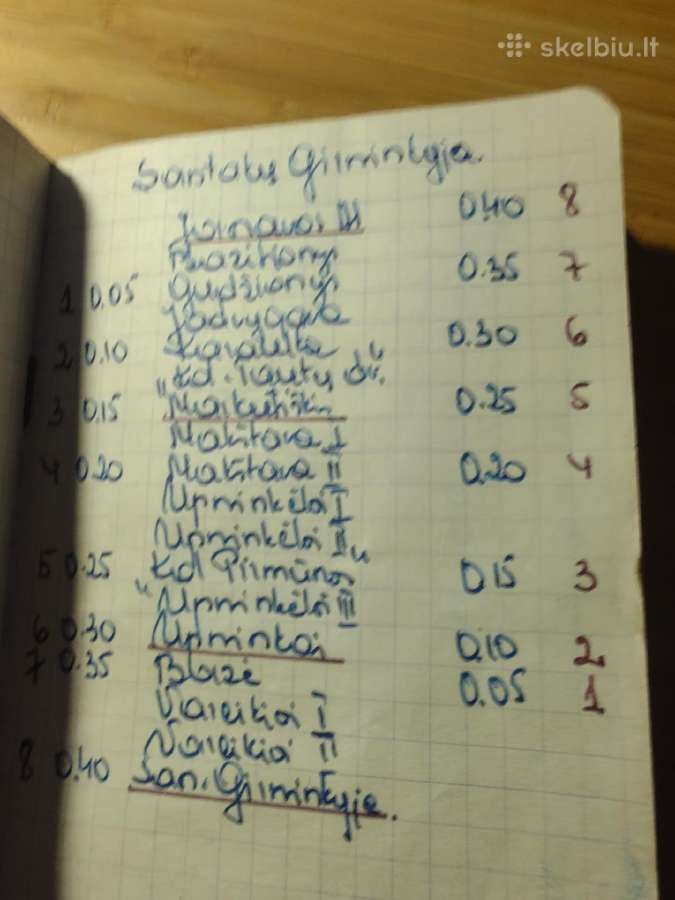 skelbiu.lt
Santaka Girininkija.
Jonavos III 0.40 8
Bazilionys
1 0.05 Gudžionys 0.35 7
Jadvygava
2 0.10 Karaliūka 0.30 6
"Kd. Tautų dr."
3 0.15 Markutiškiai 0.25 5
Makštava I
4 0.20 Makštava II 0.20 4
Upninkėliai I
Upninkėliai II
5 0.25 "Kd Pirmūnas" 0.15 3
Upninkėliai III
6 0.30 Upninkai 0.10 2
7 0.35 Blazė 0.05 1
Vareikiai I
Vareikiai II
8 0.40 San. Girininkyja.